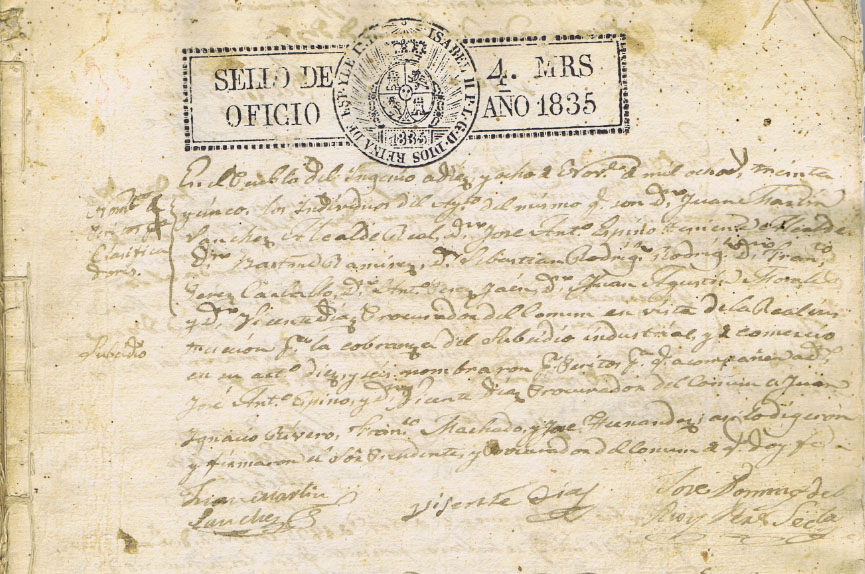 SELLO DE
OFICIO
4. MRS
AÑO 1835
ISABEL II P. L. G. D. DIOS REINA DE ESP. Y DE
1835
En el Pueblo del Ingenio a diez y ocho de de mil ochos treinta
y cinco, los Individuos del Aytº. del mismo q. son dn. Juan Martin
Sanchez Alcalde Real, dn. Jose Antº. Espino teniente Alcalde
dn. Bartmé Ramirez, dn. Sebastian Rodrigz. Rodrigz. dn. Franco.
Perez Caraballo, dn. Antº. Perez Jaen, dn. Juan Agustin Morales
y dn. Vicente Diaz Procurador del Comun en vista de la Real ins
truccion pa. la cobranza del Subsidio industrial, y de comercio
en su artº. diez y seis nombraron pr. Peritos pa. q. acompañen a dn.
José Antº. Espino, y dn. Vicente Diaz Procurador del Comun a Juan
Ignacio Rivero, Franco. Machado, y Jose Hernandez; asi lo digeron
y firmaron el Sor. Presidente, y Procurador del Comun de q. doy fe
Nombto. de
Peritos
Clasifica
dores.
Subsidio
Juan Martin
Sanchez
Visente Dias
Jose Domingo del
Secto.